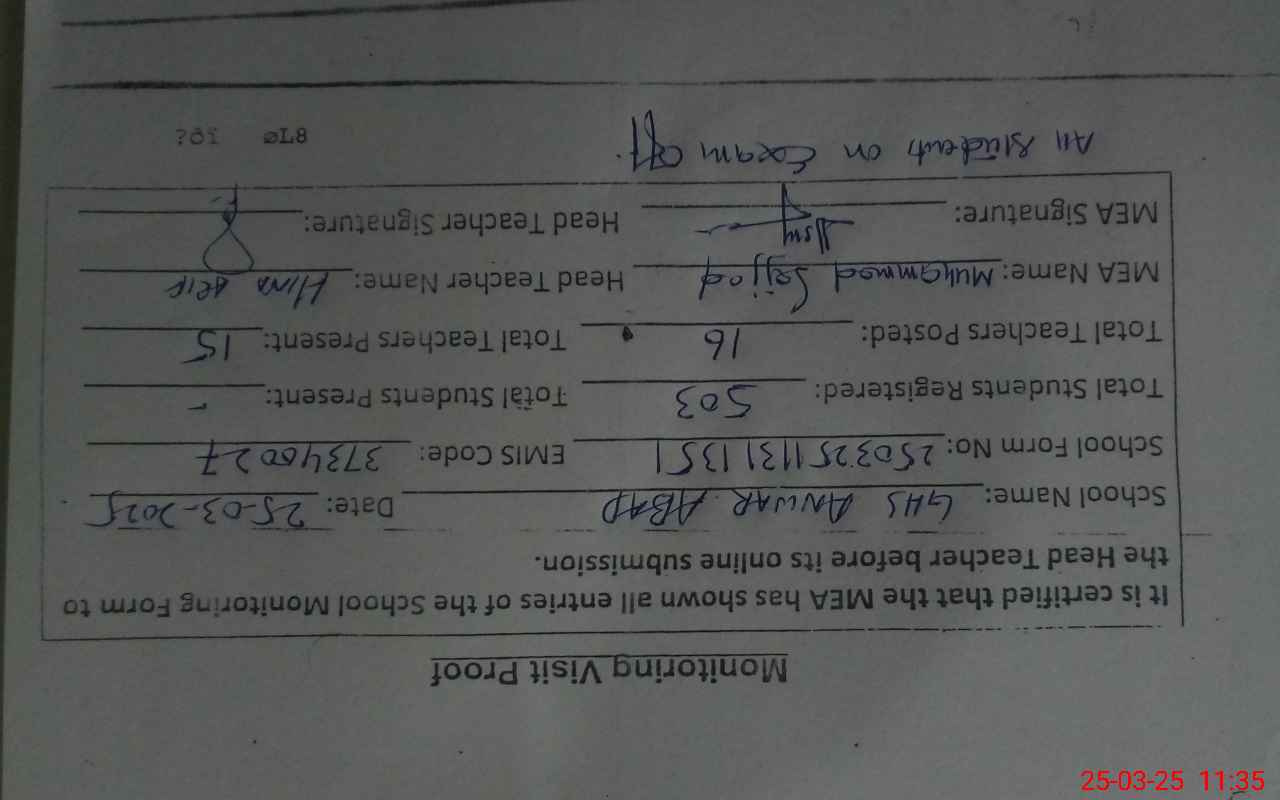 Monitoring Visit Proof
It is certified that the MEA has shown all entries of the School Monitoring Form to
the Head Teacher before its online submission.
School Name: GHS ANWAR ABAD Date: 25-03-2025
School Form No: 25032511311351 EMIS Code: 37340027
Total Students Registered: 503 Total Students Present: -
Total Teachers Posted: 16 Total Teachers Present: 15
MEA Name: Muhammad Sajjad Head Teacher Name: HINA
MEA Signature: Head Teacher Signature:
All students on Exam off
25-03-25 11:35